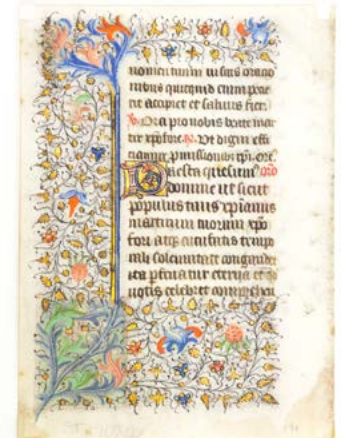 nomen tuum in suis oracio
nibus quicquid cum pere
rit accipiet et salvus fiet.
V. Ora pro nobis beate mar
tir xpofore. R. Ut digni effi
ciamur p missionibus xpi. ore.
Presta quesumus oro
domine ut sicut
populus tuus xpianus
martirum xpo
fori atq; tempo
rali solennitate congaudet
ita pfruatur eterna et
votis celebret comprehen